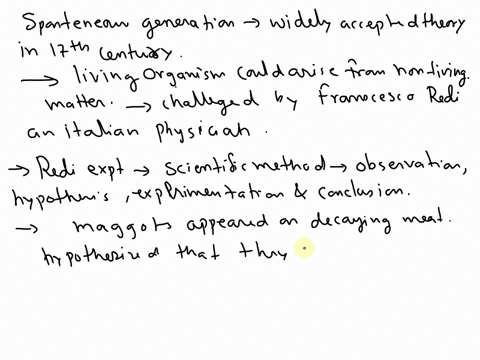 Spontaneous generation → widely accepted theory
in 17th century.
→ living organism could arise from nonliving
matter. → challeged by Francesco Redi
an italian physician.
→ Redi expt → scientific method → observation,
hypothesis, experimentation & conclusion.
→ maggots appeared on decaying meat.
hypothesized that they